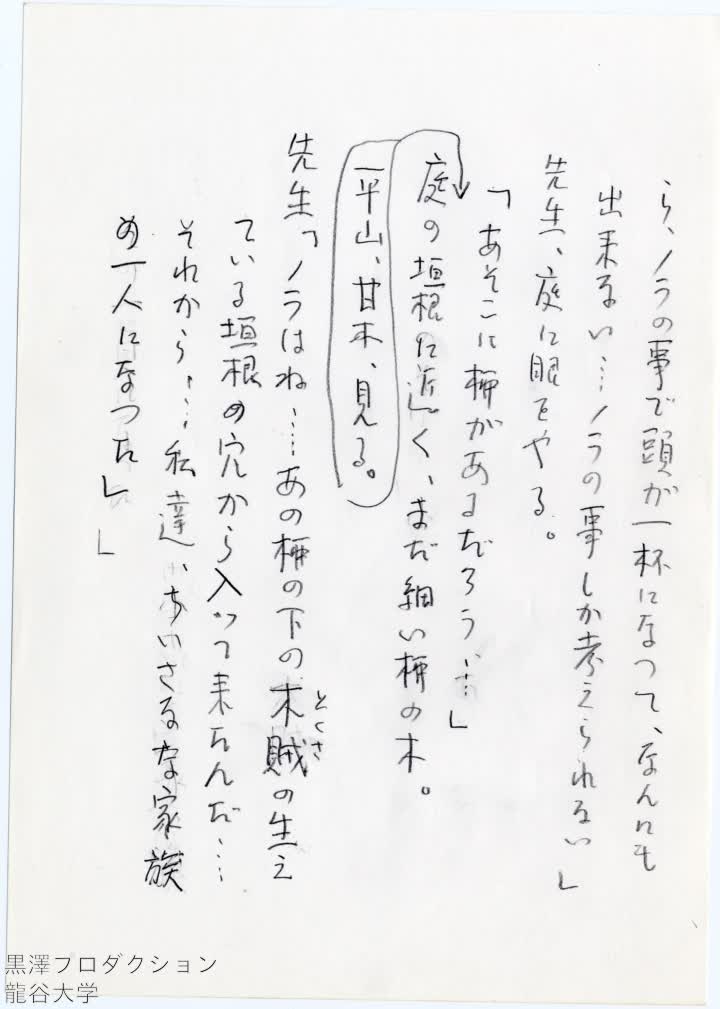 ら、ノラの事で頭が一杯になつて、なんにも
出来ない…ノラの事しか考えられない」
先生、庭に眼をやる。
「あそこに柵があるだろう…」
庭の垣根に近く、まだ細い柵の木。
平山、甘木、見る。
先生「ノラはね…あの柵の下の木賊の生え
とくさ
ている垣根の穴から入って来たんだ…
それから…私達、ちいさな家族
の一人になつた」
」
黒澤プロダクション
龍谷大学